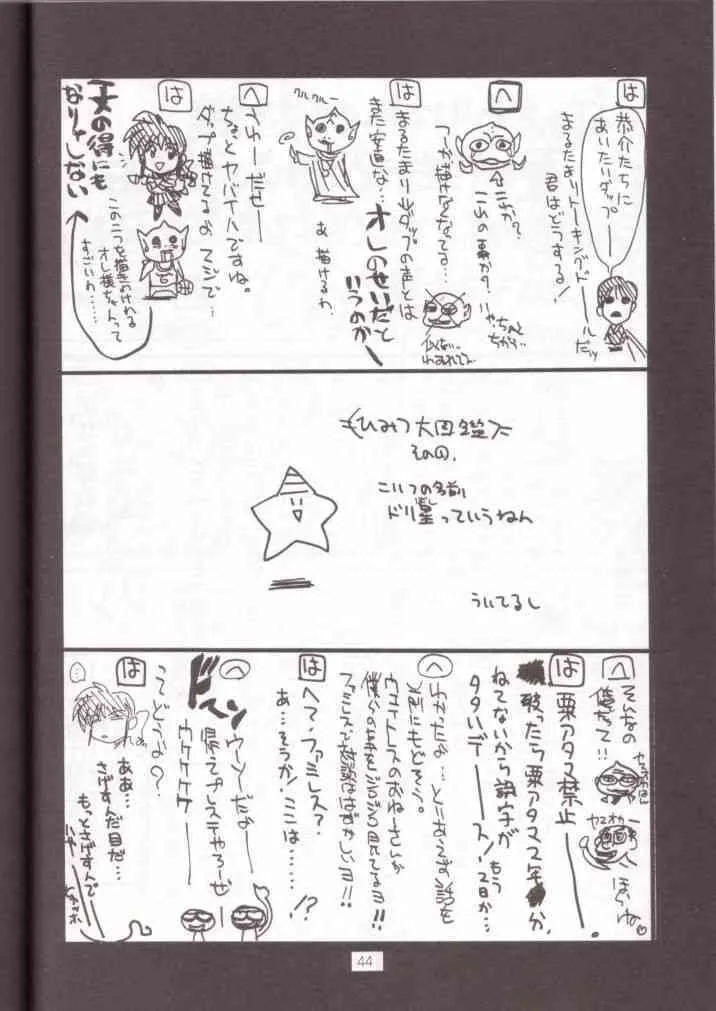 は
恭介たちに
あいたいダップ
まるたまりトーキングドールだッ
君はどうする!
へ
これか?
これの事か?
いやちゃんちがう…
つーか描けなくなってる…
は
まるたまりダップの声とは
また安直な…
オレのせいだと
いうのかー
クルクルー
あ 描けるわ
へ
うわーだせー
ちょっとヤバイハですね。
ダップ描けてるよ マジで…
は
この二つを描きわけれる
オレ様ちゃんって
すごいわ……
一文の得にも
なりゃしない
ひみつ大図鑑
その
こいつの名前
ドリ星っていうねん
ういてるし
へ
そんなの
俺だって!!
ヤマオカー
ほらね
は
栗アタマ禁止ー
破ったら栗アタマ2年か、
ねてないから誤字が
もう2日か…
タタいデースソ
へ
わかったよ…とにあえず話を
元にもどそう。
ウエイトレスのおねーさんが
僕らの事をジロジロ見てるヨ!!
ファミレスで放談ははずかしいヨ!!
は
へて、ファミレス?
あ…そうか!ここは……!?
へ
ウーソだよー
帰ってプレステやろーぜ
ウケケケケー
ドスーン
は
ってどうよ?
ああ…
さげすんだ目だ…
もっとさげすんで
44